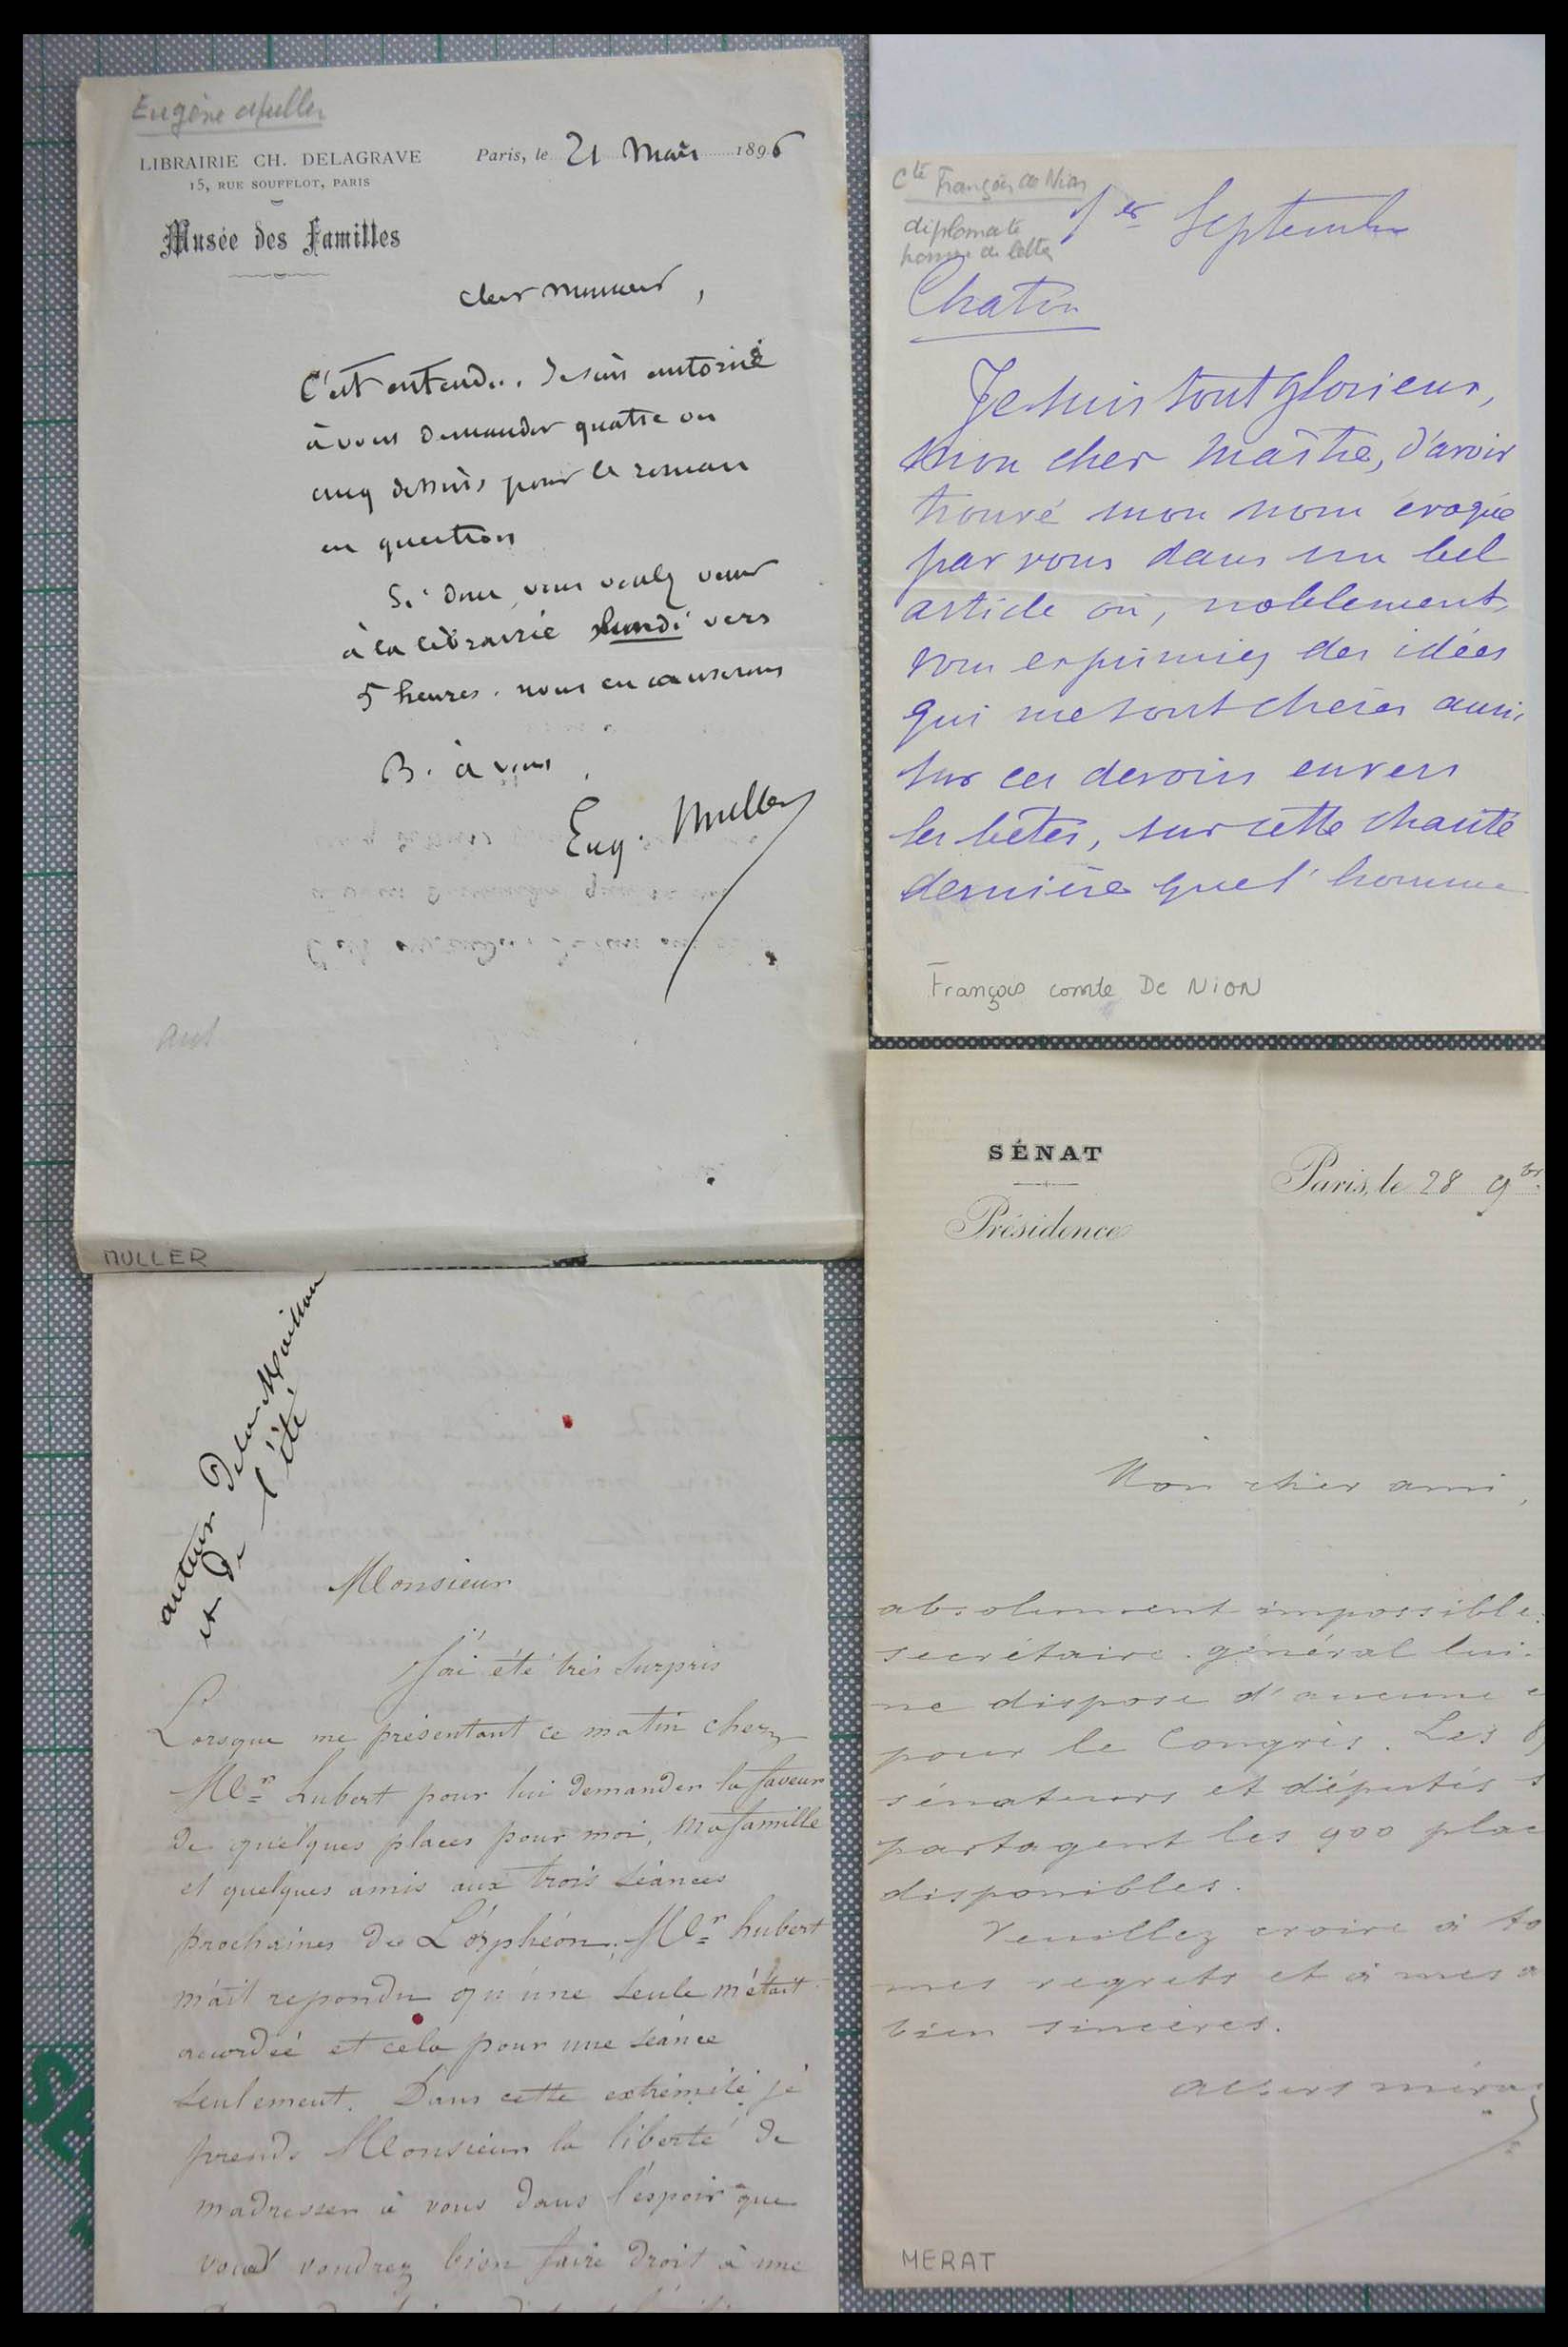 Eugène Muller
LIBRAIRIE CH. DELAGRAVE
15, RUE SOUFFLOT, PARIS
Musée des Familles
Paris, le 21 Mars 1896
Cher Monsieur,
C'est entendu. Je suis autorisé
à vous demander quatre ou
cinq dessins pour le roman
en question
Si donc vous voulez venir
à la librairie lundi vers
5 heures. nous en causerons
B. à vous
Eug. Muller
MULLER
Cte François de Nion
diplomate
homme de lettres
1er Septembre
Chatou
Je suis tout glorieux,
mon cher Maître, d'avoir
trouvé mon nom évoqué
par vous dans un bel
article où, noblement,
vous exprimiez des idées
qui me sont chères aussi,
sur ces devoirs envers
les bêtes, sur cette charité
dernière que l'homme
François comte De NiON
auteur de la Maison
et de l'été
Monsieur
J'ai été très surpris
Lorsque me présentant ce matin chez
Mr Hubert pour lui demander la faveur
de quelques places pour moi, ma famille
et quelques amis aux trois séances
prochaines de L'orphéon, Mr hubert
m'ait repondu qu'une seule m'était
accordée et cela pour une séance
seulement. Dans cette extrémité je
prends Monsieur la liberté de
madresser à vous dans l'espoir que
vous voudrez bien faire droit à une
SÉNAT
Présidence
Paris, le 28 9br
Mon cher ami,
absolument impossible.
secrétaire général lui-
ne dispose d'aucune
pour le Congrès. Les
sénateurs et députés s
partagent les 900 plac
disponibles.
Veuillez croire à to
mes regrets et à mes a
bien sincères.
Albert Mérat
MERAT